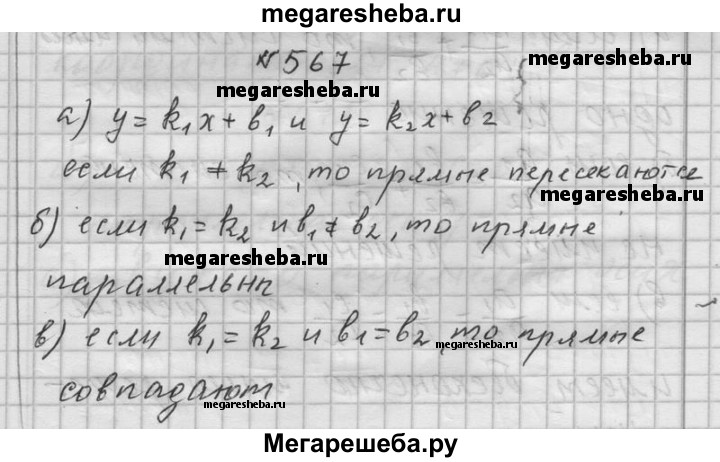 megaresheba.ru
№ 567
megaresheba.ru
megaresheba.ru
а) y = k₁x + b₁ и y = k₂x + b₂
если k₁ ≠ k₂, то прямые пересекаются
megaresheba.ru
б) если k₁ = k₂ и b₁ ≠ b₂, то прямые
megaresheba.ru
параллельны
в) если k₁ = k₂ и b₁ = b₂, то прямые
megaresheba.ru
совпадают
megaresheba.ru
Мегарешеба.ру